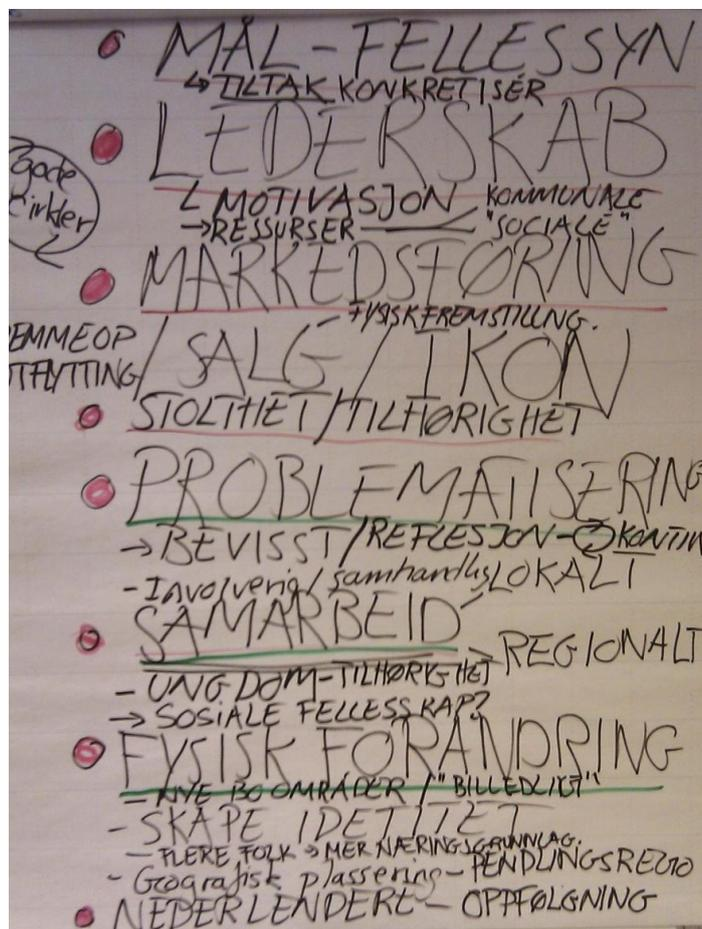 MÅL - FELLESSYN
↳ TILTAK KONKRETISÉR
LEDERSKAB
gode
MOTIVASJON KOMMUNALE
→ RESSURSER — "SOCIALE"
MARKEDSFØRING
- FYSISK FREMSTILLNG.
/ SALG / IKON
STOLTHET/TILHØRIGHET
PROBLEMATISERING
→ BEVISST/REFLESJON -
- Involverig/samhandlig LOKALT
SAMARBEID
→ REGIONALT
- UNGDOM-TILHØRIGHET
→ SOSIALE FELLESSKAP?
FYSISK FORANDRING
- NYE BOOMRÅDER / "BILLEDLIGT"
- SKAPE IDETITET
- FLERE FOLK → MER NÆRINGSGRUNNLAG.
- Gografisk plassering - PENDLINGSREGIO
NEDERLENDERE - OPPFØLGNING